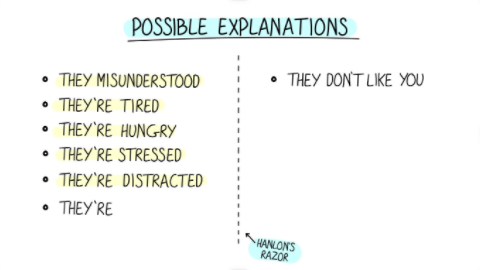 POSSIBLE EXPLANATIONS
• THEY MISUNDERSTOOD
• THEY'RE TIRED
• THEY'RE HUNGRY
• THEY'RE STRESSED
• THEY'RE DISTRACTED
• THEY'RE
• THEY DON'T LIKE YOU
HANLON'S
RAZOR